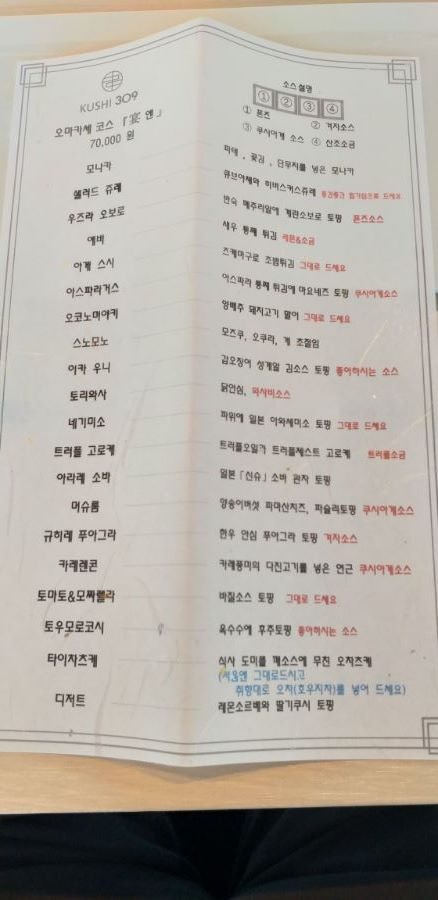 KUSHI 309
오마카세 코스 「宴 엔」
70,000 원
소스설명
① ② ③ ④
① 폰즈 ② 겨자소스
③ 쿠시아게 소스 ④ 산초소금
모나카 파테, 곶감, 단무지를 넣은 모나카
샐러드 쥬레 큐브야채와 히비스커스쥬레 중간중간 입가심으로 드세요
우즈라 오보로 반숙 메추리알에 계란소보로 토핑 폰즈소스
에비 새우 통째 튀김 레몬&소금
아게 스시 즈케마구로 초밥튀김 그대로 드세요
아스파라거스 아스파라 통째 튀김에 마요네즈 토핑 쿠시아게소스
오코노미야키 양배추 돼지고기 말이 그대로 드세요
스노모노 모즈쿠, 오쿠라, 게 초절임
아카 우니 갑오징어 성게알 김소스 토핑 좋아하시는 소스
토리와사 닭안심, 와사비소스
네기미소 파위에 일본 아와세미소 토핑 그대로 드세요
트러플 고로케 트러플오일가 트러플제스트 고로케 트러플소금
아라레 소바 일본「신슈」소바 관자 토핑
머슈룸 양송이버섯 파마산치즈, 파슬리토핑 쿠시아게소스
규히레 푸아그라 한우 안심 푸아그라 토핑 겨자소스
카레렌콘 카레풍미의 다진고기를 넣은 연근 쿠시아게소스
토마토&모짜렐라 바질소스 토핑 그대로 드세요
토우모로코시 옥수수에 후추토핑 좋아하시는 소스
타이차즈케 식사 도미를 깨소스에 무친 오차즈케
(처음엔 그대로드시고
취향대로 오차(호우지차)를 넣어 드세요)
디저트 레몬소르베와 딸기쿠시 토핑